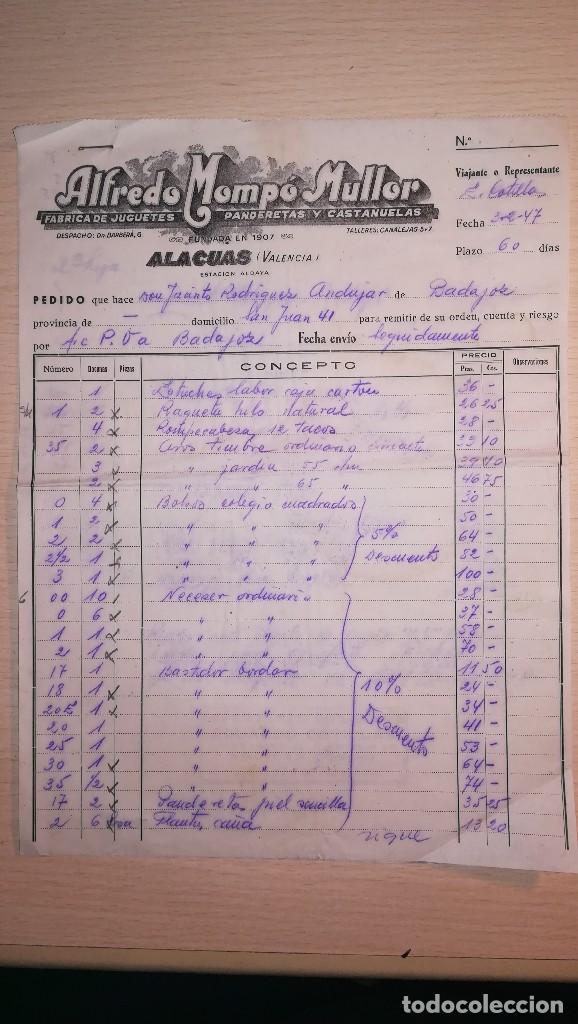 N.º
Viajante o Representante
Alfredo Mompó Mullor
FABRICA DE JUGUETES PANDERETAS Y CASTAÑUELAS
DESPACHO: DR. BARBERÁ, 6 FUNDADA EN 1907 TALLERES: CANALEJAS 5 y 7
Fecha 3-2-47
ALACUAS (VALENCIA)
ESTACION ALDAYA
Plazo 60 días
PEDIDO que hace Don Jacinto Rodriguez Andujar de Badajoz
provincia de — domicilio San Juan 41 para remitir de su orden, cuenta y riesgo
por f.c P. Va Badajoz Fecha envío Seguidamente
Número Docenas Piezas CONCEPTO PRECIO Observaciones
Ptas. Cts.
1 Estuches labor caja carton 36 -
1 2 x Raqueta hilo natural 26 25
4 x Rompecabeza 12 tacos 28 -
35 2 x Aros timbre ordinario 33 10
3 " jardin 55 c/m 39 40
2 x " " 65 " 46 75
0 4 x Bolsos colegio cuadrados 30 -
1 2 x " " " 50 -
2 2 x " " " 5% 64 -
2/2 1 x " " " Descuento 82 -
3 1 x " " " 100 -
6 00 10 Neceser ordinario 28 -
0 6 x " " 37 -
1 1 x " " 58 -
2 1 x " " 70 -
17 1 Bastidor bordar 11 50
18 1 x " " 10% 24 -
20E 1 x " " 34 -
20 1 " " Descuento 41 -
25 1 " " 53 -
30 1 x " " 64 -
35 1/2 x " " 74 -
17 2 x Pandereta piel sencilla 35 25
2 6 Flautas caña 13 20
sigue
todocoleccion